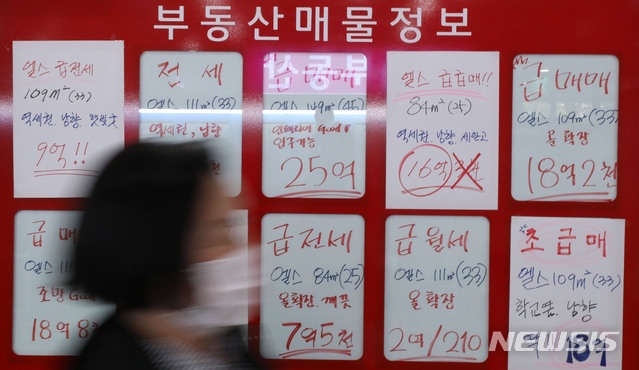 부동산매물정보
엘스 급전세
109m²(33)
역세권, 남향
9억!!
전세
엘스 111m²(33)
역세권, 남향
급매매
엘스 149m²(45)
인테리어 Good!!
입주가능
25억
엘스 급급매!!
84m²(25)
역세권, 남향, 세안고
16억
급매매
엘스 109m²(33)
올확장
18억2천
급매
엘스 111
조망 Good
18억8
급전세
엘스 84m²(25)
올확장, 깨끗
7억5천
급월세
엘스 111m²(33)
올확장
2억/210
초급매
엘스 109m²(33)
학교옆, 남향
18억
NEWSIS